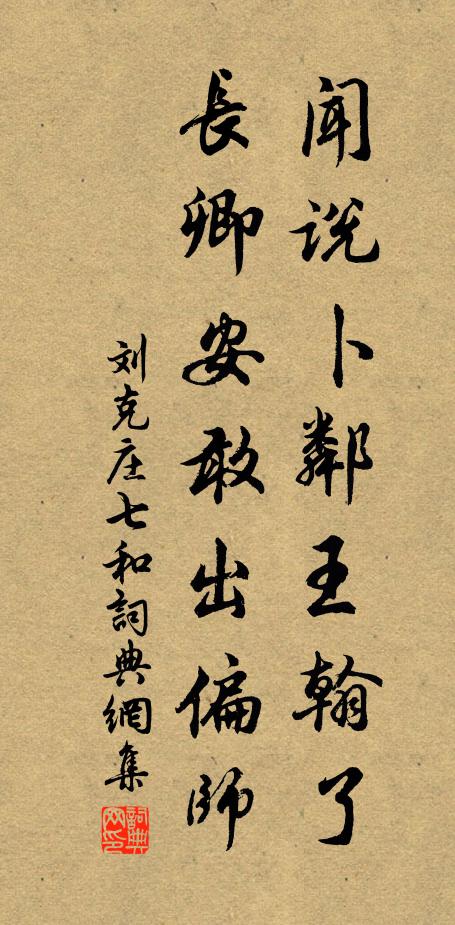 闻说卜鄰王翰了
長卿安敢出偏師
刘克庄七和詞典網集
詞典网印